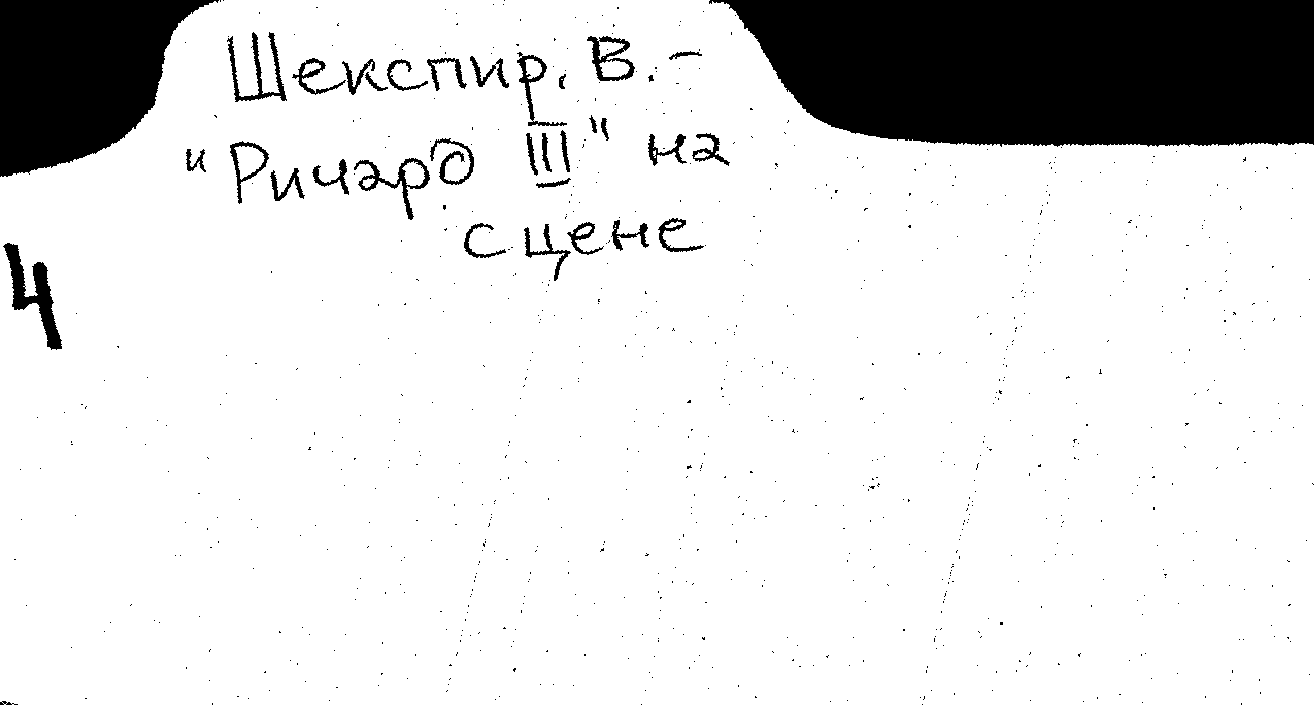 Шекспир. В. -
"Ричард III" на
сцене
4